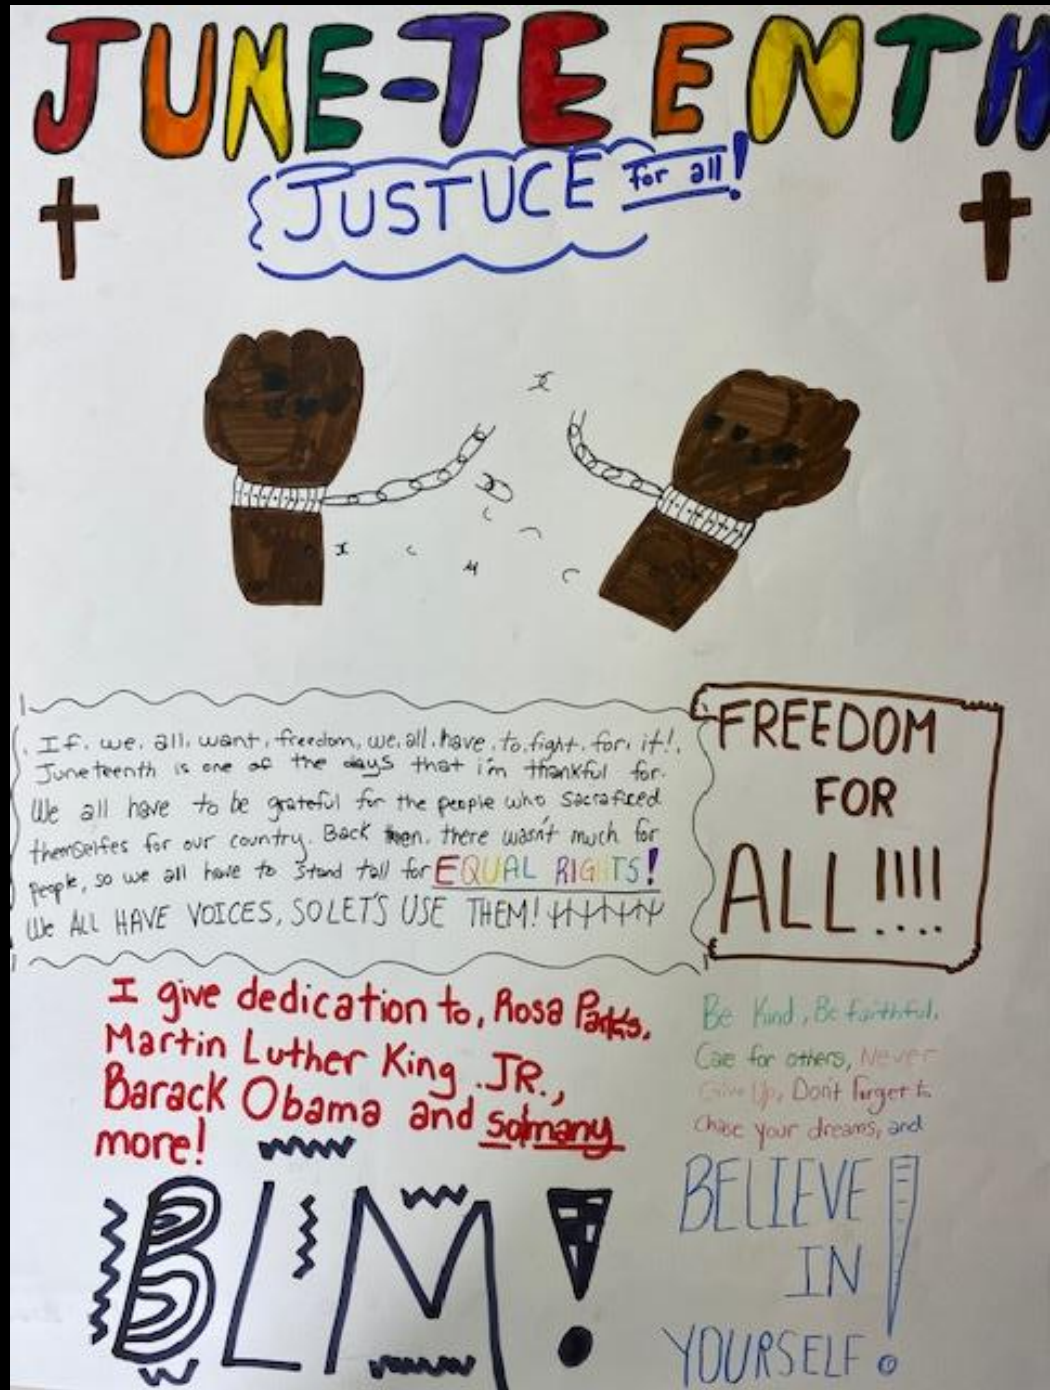 JUNE-TEENTH
JUSTUCE for all!
If. we. all. want. freedom, we. all. have. to. fight. for. it!.
Juneteenth is one of the days that i'm thankful for.
We all have to be grateful for the people who sacraficed
themselfes for our country. Back then, there wasn't much for
people, so we all have to stand tall for EQUAL RIGHTS!
We ALL HAVE VOICES, SO LET'S USE THEM!
FREEDOM
FOR
ALL!!!!
I give dedication to, Rosa Parks,
Martin Luther King .JR.,
Barack Obama and so many
more!
BLM!
Be Kind, Be faithful,
Cae for others, Never
Give Up, Dont forget to
chase your dreams, and
BELIEVE
IN
YOURSELF!